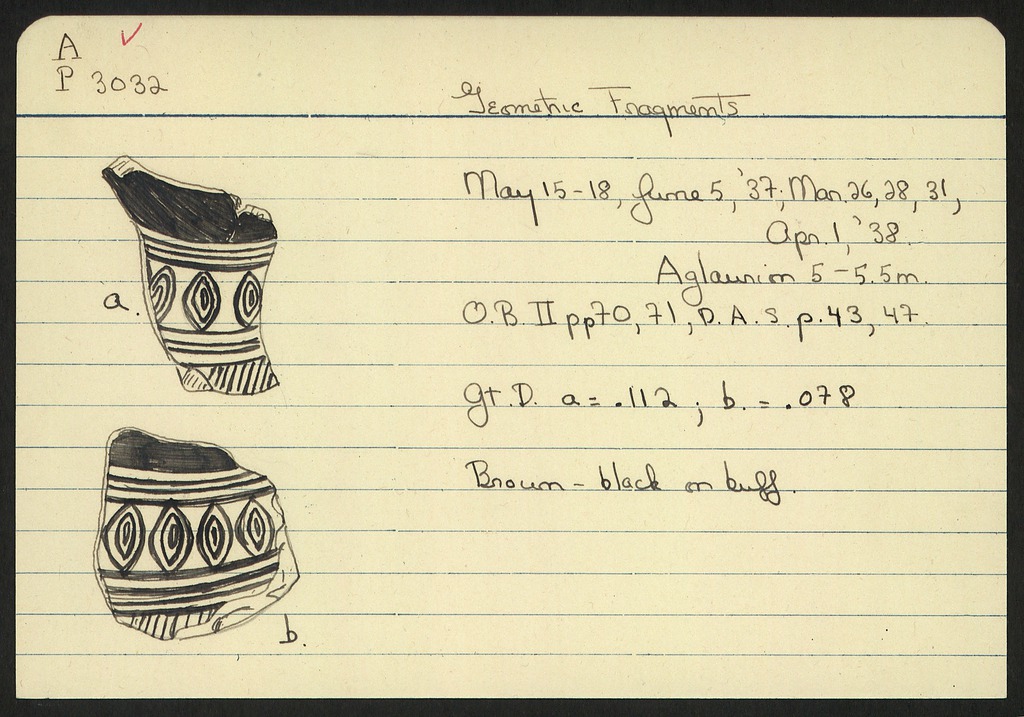 A
P 3032
Geometric Fragments
May 15-18, June 5, '37; Mar. 26, 28, 31,
Apr. 1, '38.
Aglaurion 5-5.5m.
O.B. II pp70, 71, D.A.S. p.43, 47.
a.
gt. D. a = .112 ; b. = .078
Brown-black on buff.
b.